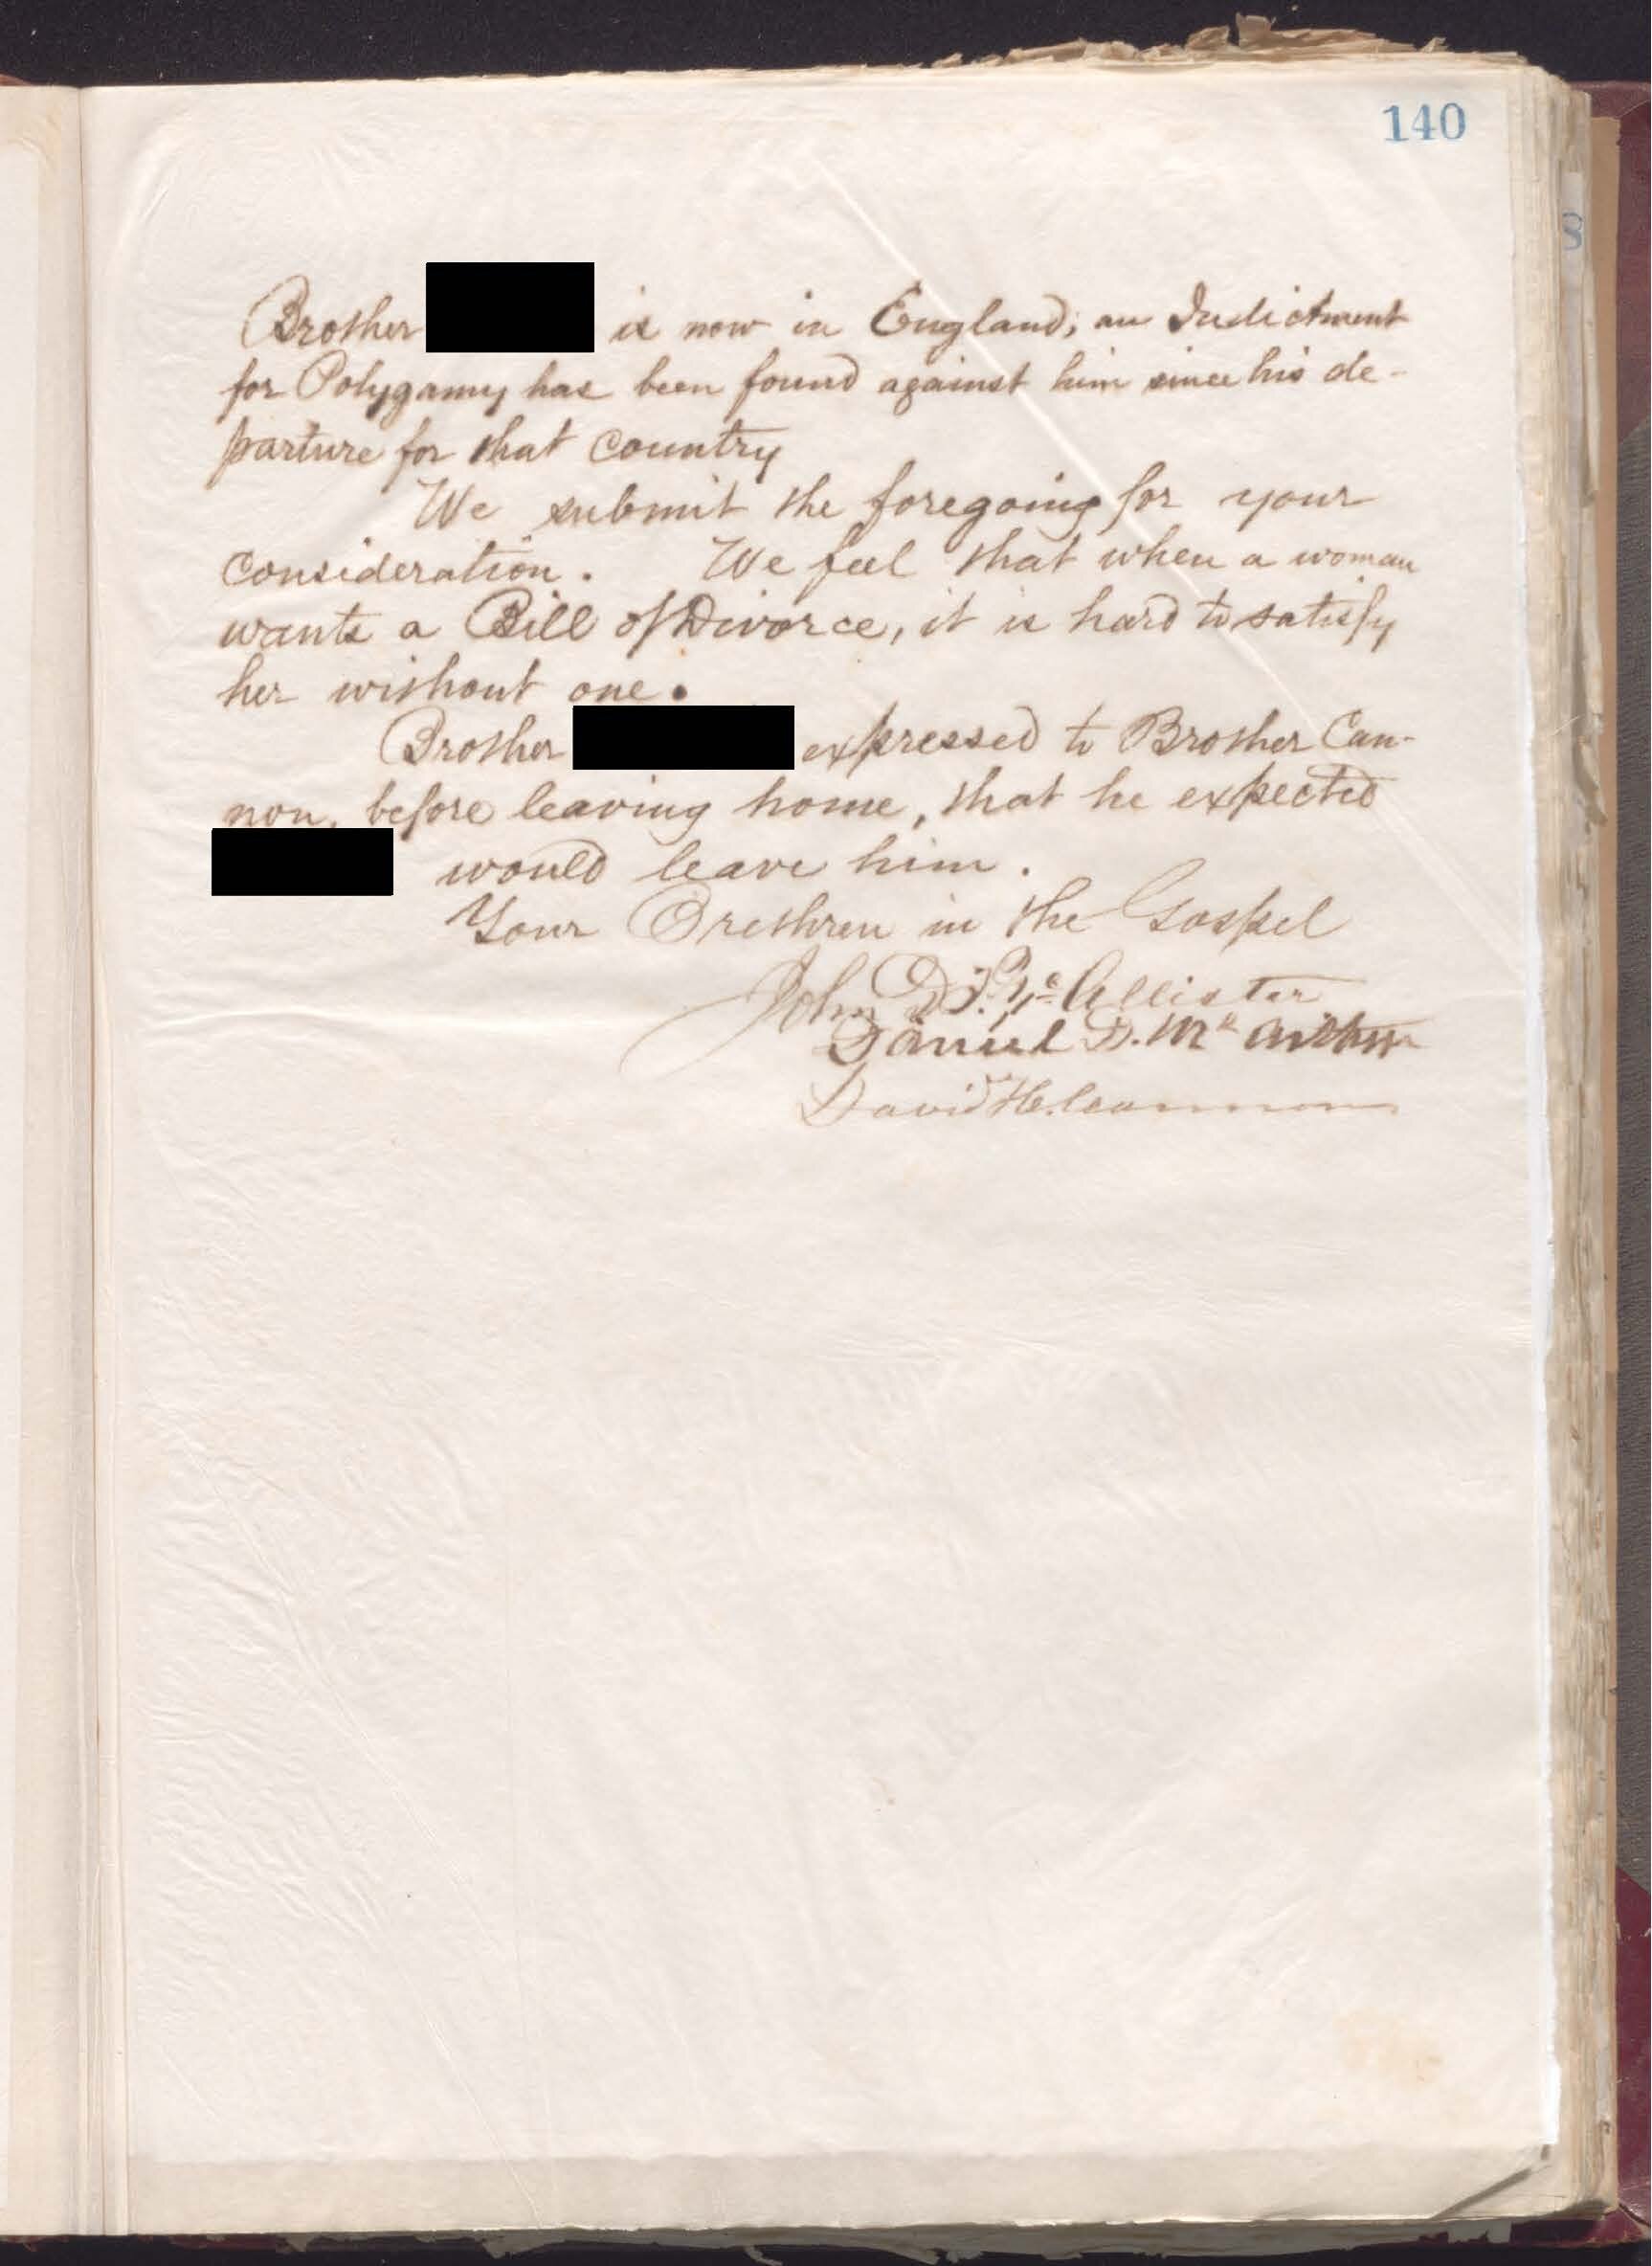 140
Brother is now in England; an Indictment
for Polygamy has been found against him since his de-
parture for that Country
We submit the foregoing for your
consideration. We feel that when a woman
wants a Bill of Divorce, it is hard to satisfy
her without one.
Brother expressed to Brother Can-
non, before leaving home, that he expected
would leave him.
Your Brethren in the Gospel
John D. T. McAllister
Daniel D. McArthur
David H. Cannon